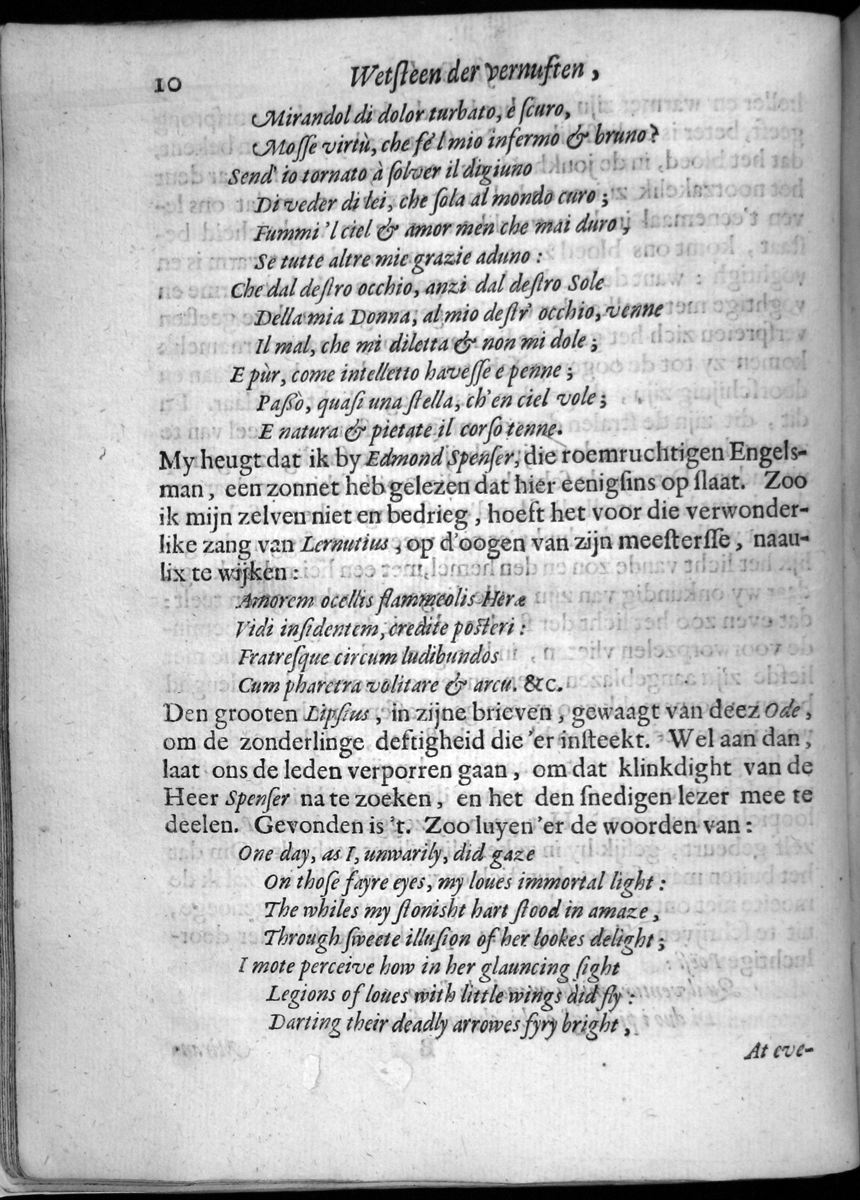 10 Wetſteen der vernuften,
Mirandol di dolor turbato, e ſcuro,
Moſſe virtù, che fè l mio infermo & bruno?
Send' io tornato à ſolver il digiuno
Di veder di lei, che ſola al mondo curo;
Fummi 'l ciel & amor men che mai duro,
Se tutte altre mie grazie aduno:
Che dal deſtro occhio, anzi dal deſtro Sole
Della mia Donna, al mio deſtr' occhio, venne
Il mal, che mi diletta & non mi dole;
E pùr, come intelletto haveſſe e penne;
Paßò, quaſi una ſtella, ch'en ciel vole;
E natura & pietate il corſo tenne.
My heugt dat ik by Edmond Spenſer, die roemruchtigen Engels-
man, een zonnet heb gelezen dat hier eenigſins op ſlaat. Zoo
ik mijn zelven niet en bedrieg, hoeft het voor die verwonder-
like zang van Lernutius, op d'oogen van zijn meeſterſſe, naau-
lix te wijken:
Amorem ocellis flammeolis Heræ
Vidi inſidentem, credite poſteri:
Fratreſque circum ludibundos
Cum pharetra volitare & arcu. &c.
Den grooten Lipſius, in zijne brieven, gewaagt van deez Ode,
om de zonderlinge deftigheid die 'er inſteekt. Wel aan dan,
laat ons de leden verporren gaan, om dat klinkdight van de
Heer Spenſer na te zoeken, en het den ſnedigen lezer mee te
deelen. Gevonden is 't. Zoo luyen 'er de woorden van:
One day, as I, unwarily, did gaze
On thoſe fayre eyes, my loues immortal light:
The whiles my ſtonisht hart ſtood in amaze,
Through ſweete illuſion of her lookes delight;
I mote perceive how in her glauncing ſight
Legions of loues with little wings did fly:
Darting their deadly arrowes fyry bright,
At eve-